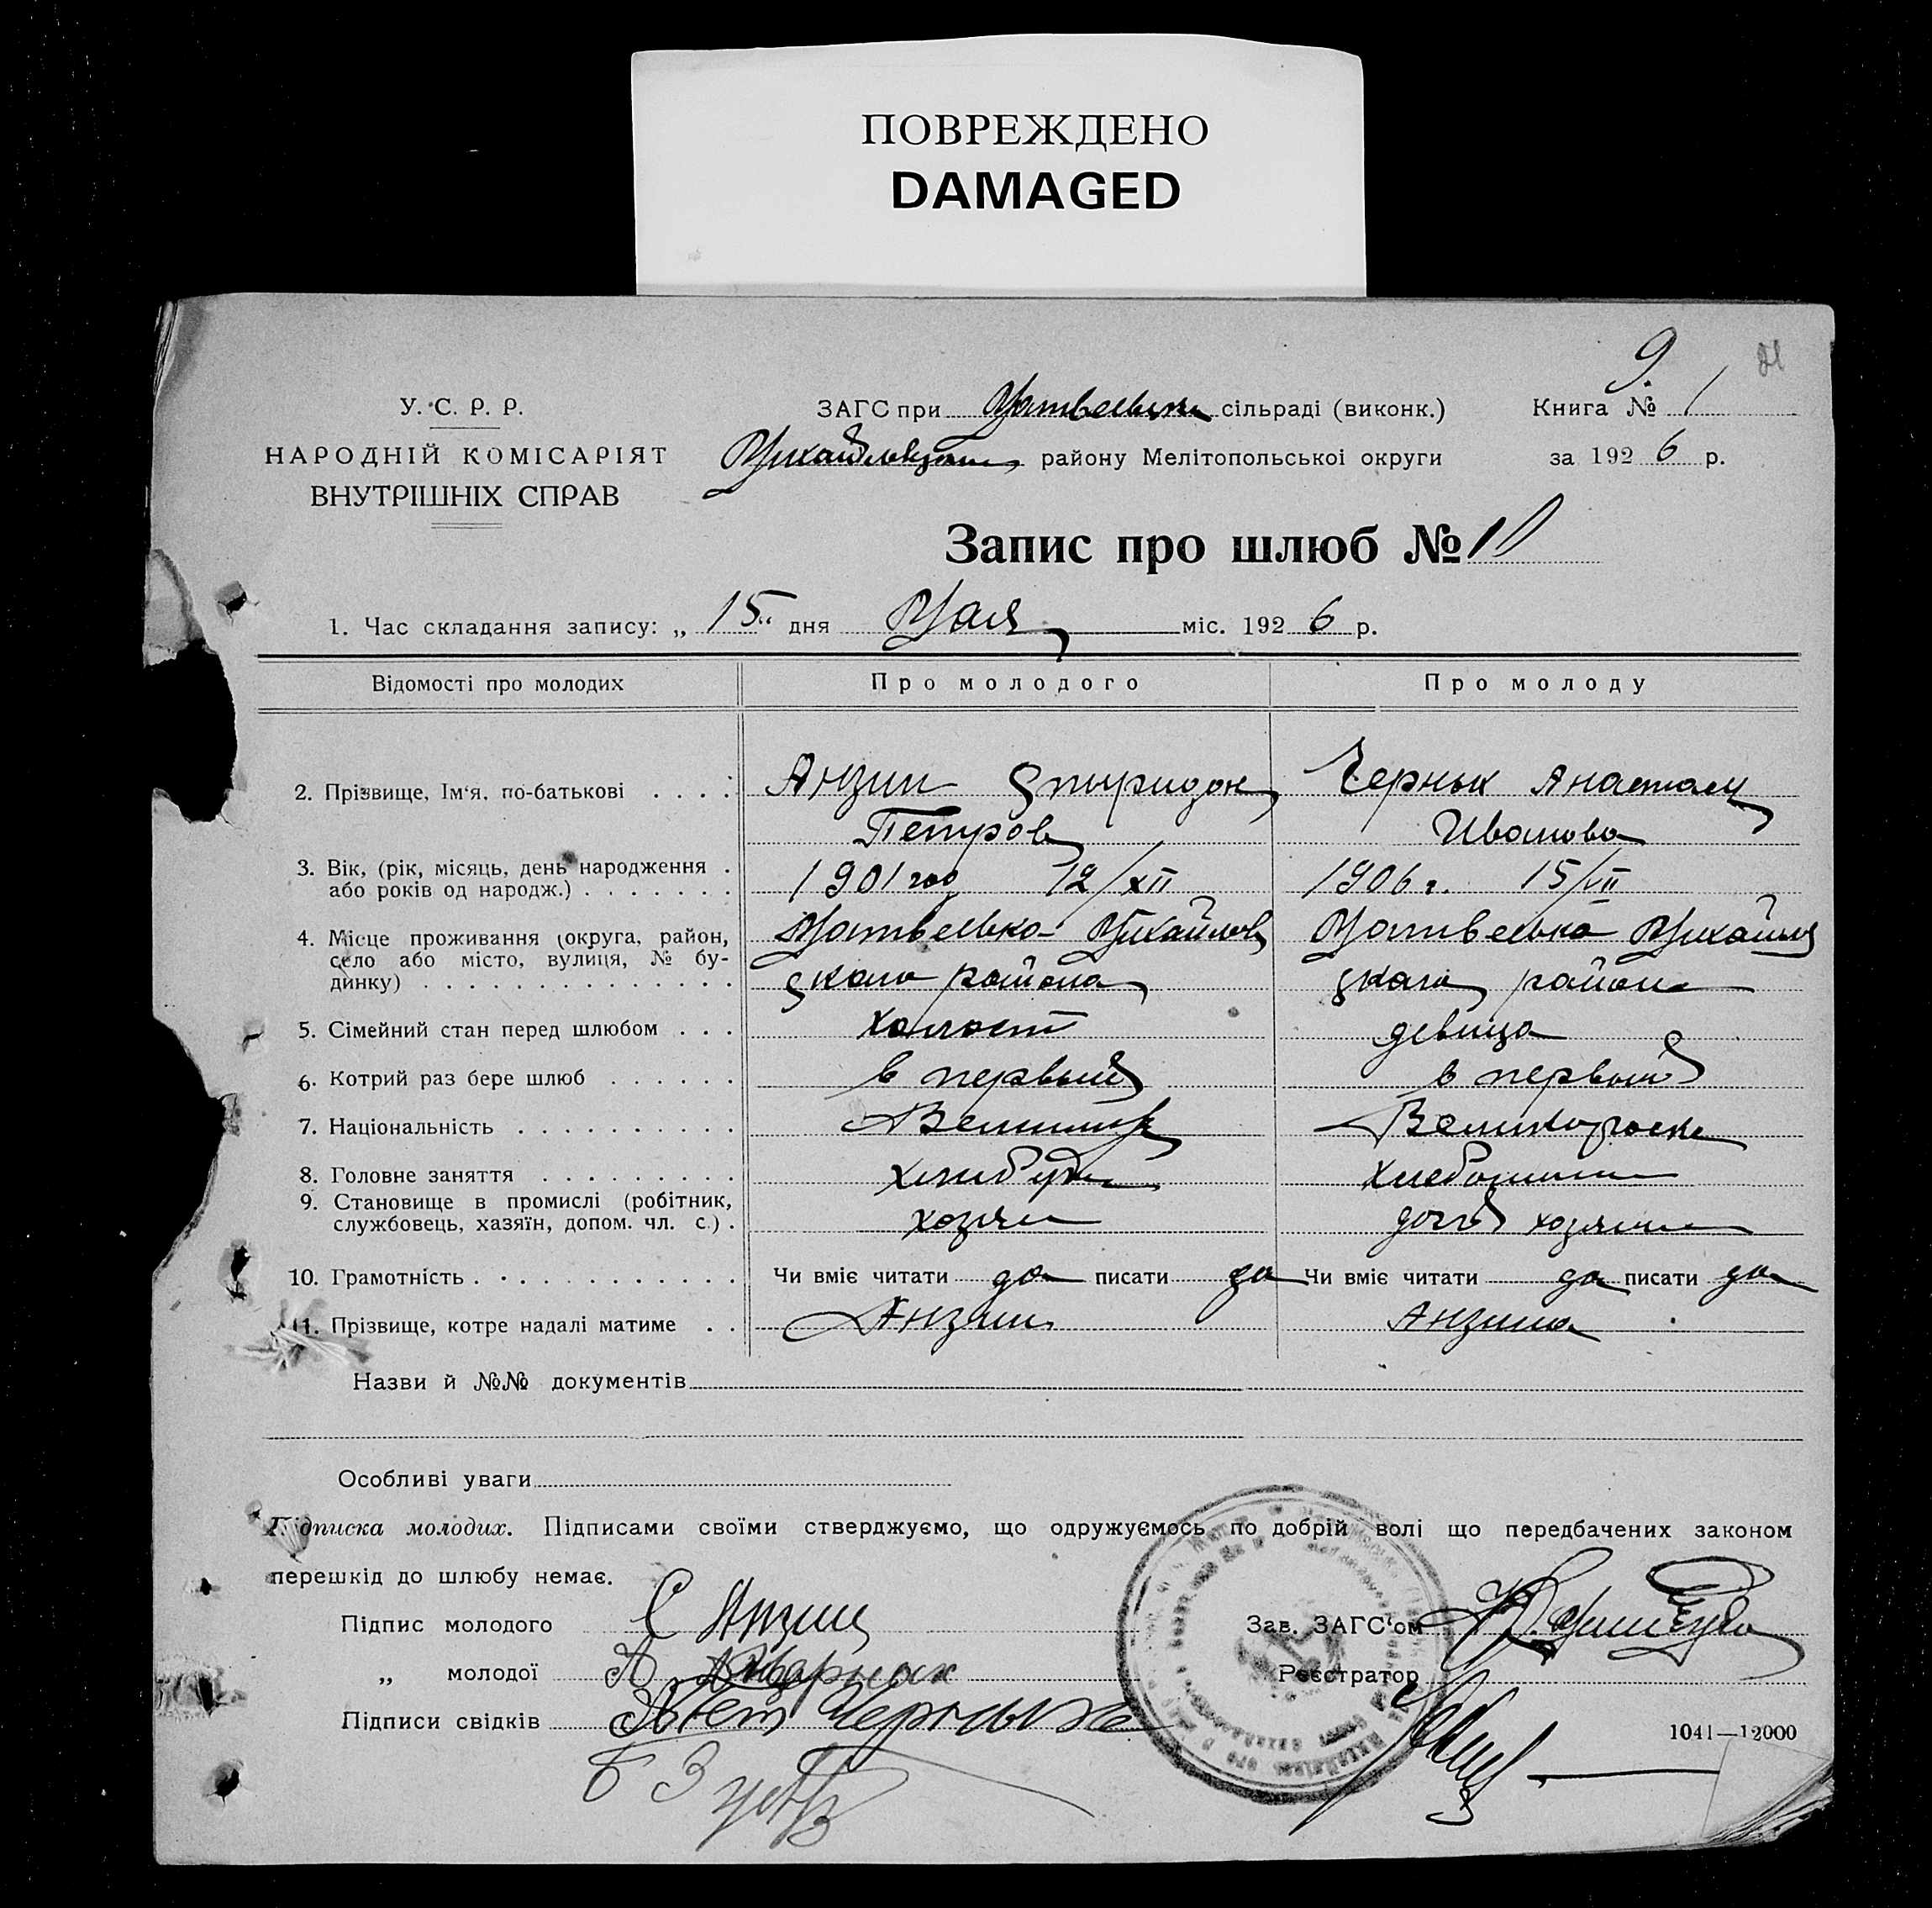 ПОВРЕЖДЕНО
DAMAGED
9.
У. С. Р. Р.
НАРОДНІЙ КОМІСАРІЯТ
ВНУТРІШНІХ СПРАВ
ЗАГС при сільраді (виконк.)
району Мелітопольськоі округи
Книга № 1
за 1926 р.
Запис про шлюб №
1. Час складання запису: „15“ дня Мая міс. 1926 р.
Відомості про молодих
Про молодого
Про молоду
2. Прізвище, Ім‘я, по-батькові
Анзин Спиридон
Петров
Черных Анастасия
Иванова
3. Вік, (рік, місяць, день народження
або років од народж.)
1901 год 12/XII
1906 г. 15/VII
4. Місце проживання (округа, район,
село або місто, вулиця, № бу-
динку)
Матвеевка Михайлов
ского района
Матвеевка Михайлов
ского района
5. Сімейний стан перед шлюбом
холост
девица
6. Котрий раз бере шлюб
в первый
в первый
7. Національність
Великоросска
8. Головне заняття
9. Становище в промислі (робітник,
службовець, хазяїн, допом. чл. с.)
хозяин
дочь хозяина
10. Грамотність
Чи вміє читати да писати да
Чи вміє читати да писати да
11. Прізвище, котре надалі матиме
Анзин
Анзина
Назви й №№ документів
Особливі уваги
Підписка молодих. Підписами своїми стверджуємо, що одружуємось по добрій волі що передбачених законом
перешкід до шлюбу немає.
Підпис молодого С Анзин
„ молодої А
Підписи свідків Черных
Зав. ЗАГС‘ом
Реєстратор
1041—12000